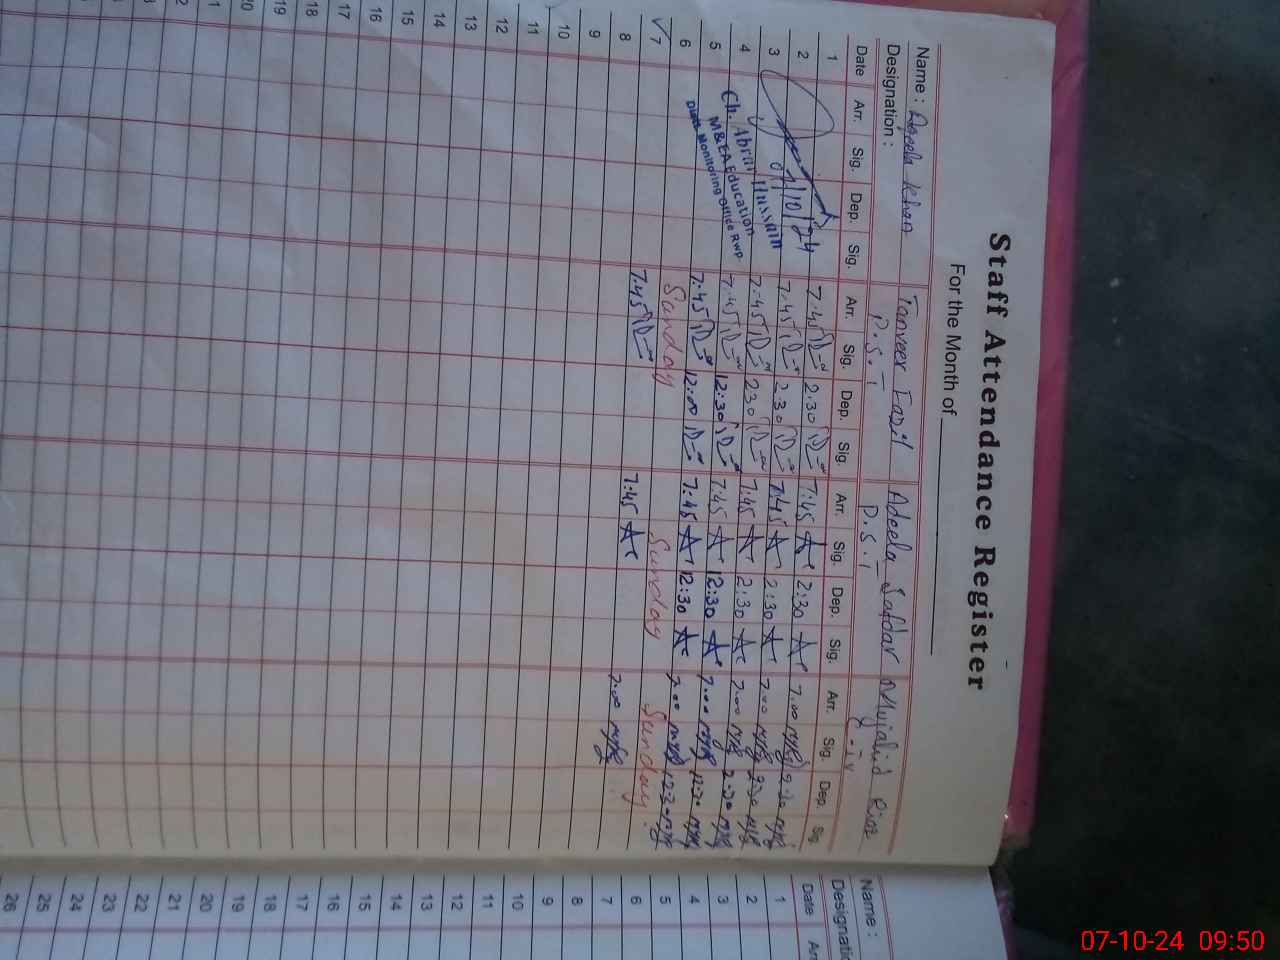 Staff Attendance Register
For the Month of
Name : Adeela Khan Tanveer Fazil Adeela Safdar Mujahid Riaz
Designation : P.S.T P.S.T
Date Arr. Sig. Dep. Sig. Arr. Sig. Dep. Sig. Arr. Sig. Dep. Sig. Arr. Sig. Dep. Sig.
1 7:45 2:30 7:45 2:30 7.00 2.30
2 7:45 2:30 7:45 2:30 7.00 2.30
3 7:45 230 7:45 2:30 7.00 2.30
4 7:45 12:30 7:45 12:30 7.00 12.30
5 7:45 12:00 7:45 12:30 7.00 12.30
6 Sunday Sunday Sunday
7 7:45 7:45 7.00
8
9
10
11
12
13
14
15
16
17
18
19
20
07/10/24
Ch. Abrar Hussain
M&EA Education
Monitoring Office RWP
Name :
Designati
Date Ar
1
2
3
4
5
6
7
8
9
10
11
12
13
14
15
16
17
18
19
20
21
22
23
24
25
26
07-10-24 09:50